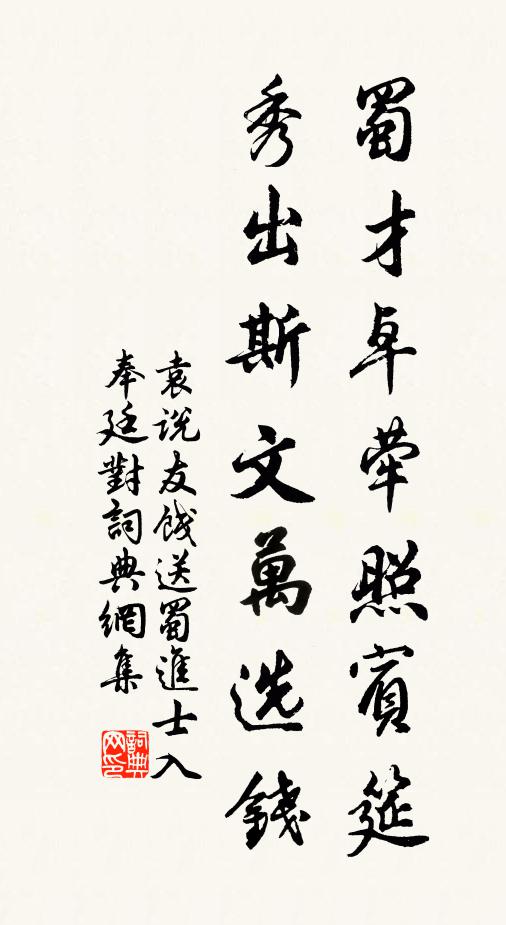 蜀才卓犖照賓筵
秀出斯文萬选錢
袁说友餞送蜀進士入
奉廷對詞典網集
詞典
网印